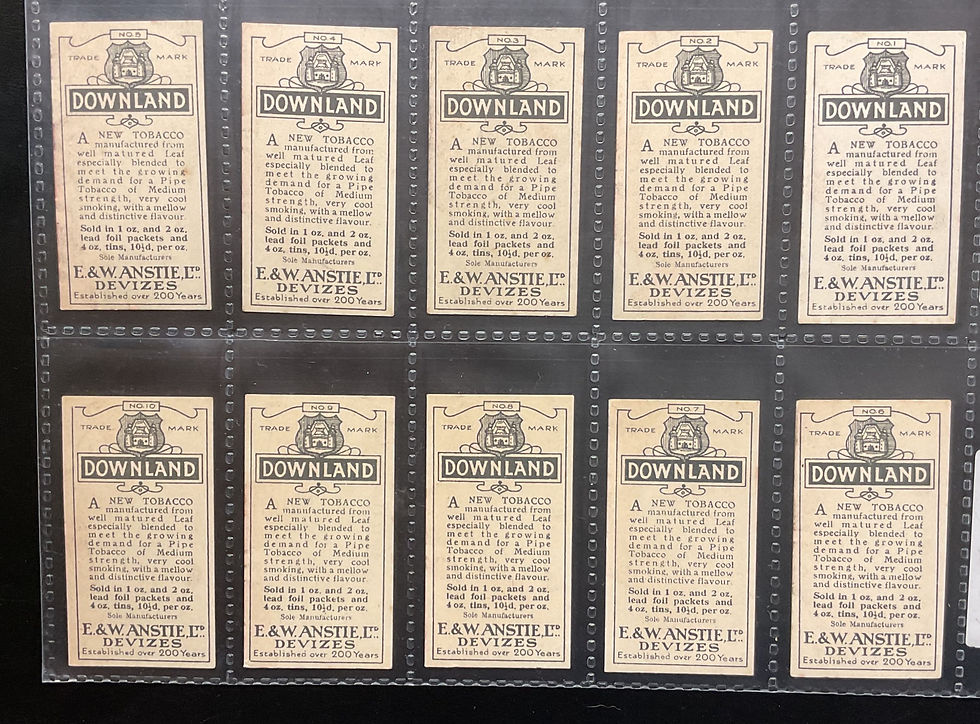 NO. 5
TRADE MARK
DOWNLAND
A NEW TOBACCO
manufactured from
well matured Leaf
especially blended to
meet the growing
demand for a Pipe
Tobacco of Medium
strength, very cool
smoking, with a mellow
and distinctive flavour.
Sold in 1 oz, and 2 oz,
lead foil packets and
4 oz, tins, 10½d, per oz.
Sole Manufacturers
E.&W. ANSTIE, LTD.
DEVIZES
Established over 200 Years
NO. 4
TRADE MARK
DOWNLAND
A NEW TOBACCO
manufactured from
well matured Leaf
especially blended to
meet the growing
demand for a Pipe
Tobacco of Medium
strength, very cool
smoking, with a mellow
and distinctive flavour.
Sold in 1 oz, and 2 oz,
lead foil packets and
4 oz, tins, 10½d, per oz.
Sole Manufacturers
E.&W. ANSTIE, LTD.
DEVIZES
Established over 200 Years
NO. 3
TRADE MARK
DOWNLAND
A NEW TOBACCO
manufactured from
well matured Leaf
especially blended to
meet the growing
demand for a Pipe
Tobacco of Medium
strength, very cool
smoking, with a mellow
and distinctive flavour.
Sold in 1 oz, and 2 oz,
lead foil packets and
4 oz, tins, 10½d, per oz.
Sole Manufacturers
E.&W. ANSTIE, LTD.
DEVIZES
Established over 200 Years
NO. 2
TRADE MARK
DOWNLAND
A NEW TOBACCO
manufactured from
well matured Leaf
especially blended to
meet the growing
demand for a Pipe
Tobacco of Medium
strength, very cool
smoking, with a mellow
and distinctive flavour.
Sold in 1 oz, and 2 oz,
lead foil packets and
4 oz, tins, 10½d, per oz.
Sole Manufacturers
E.&W. ANSTIE, LTD.
DEVIZES
Established over 200 Years
NO. 1
TRADE MARK
DOWNLAND
A NEW TOBACCO
manufactured from
well matured Leaf
especially blended to
meet the growing
demand for a Pipe
Tobacco of Medium
strength, very cool
smoking, with a mellow
and distinctive flavour.
Sold in 1 oz, and 2 oz,
lead foil packets and
4 oz, tins, 10½d, per oz.
Sole Manufacturers
E.&W. ANSTIE, LTD.
DEVIZES
Established over 200 Years
NO. 10
TRADE MARK
DOWNLAND
A NEW TOBACCO
manufactured from
well matured Leaf
especially blended to
meet the growing
demand for a Pipe
Tobacco of Medium
strength, very cool
smoking, with a mellow
and distinctive flavour.
Sold in 1 oz, and 2 oz,
lead foil packets and
4 oz, tins, 10½d, per oz.
Sole Manufacturers
E.&W. ANSTIE, LTD.
DEVIZES
Established over 200 Years
NO. 9
TRADE MARK
DOWNLAND
A NEW TOBACCO
manufactured from
well matured Leaf
especially blended to
meet the growing
demand for a Pipe
Tobacco of Medium
strength, very cool
smoking, with a mellow
and distinctive flavour.
Sold in 1 oz, and 2 oz,
lead foil packets and
4 oz, tins, 10½d, per oz.
Sole Manufacturers
E.&W. ANSTIE, LTD.
DEVIZES
Established over 200 Years
NO. 8
TRADE MARK
DOWNLAND
A NEW TOBACCO
manufactured from
well matured Leaf
especially blended to
meet the growing
demand for a Pipe
Tobacco of Medium
strength, very cool
smoking, with a mellow
and distinctive flavour.
Sold in 1 oz, and 2 oz,
lead foil packets and
4 oz, tins, 10½d, per oz.
Sole Manufacturers
E.&W. ANSTIE, LTD.
DEVIZES
Established over 200 Years
NO. 7
TRADE MARK
DOWNLAND
A NEW TOBACCO
manufactured from
well matured Leaf
especially blended to
meet the growing
demand for a Pipe
Tobacco of Medium
strength, very cool
smoking, with a mellow
and distinctive flavour.
Sold in 1 oz, and 2 oz,
lead foil packets and
4 oz, tins, 10½d, per oz.
Sole Manufacturers
E.&W. ANSTIE, LTD.
DEVIZES
Established over 200 Years
NO. 6
TRADE MARK
DOWNLAND
A NEW TOBACCO
manufactured from
well matured Leaf
especially blended to
meet the growing
demand for a Pipe
Tobacco of Medium
strength, very cool
smoking, with a mellow
and distinctive flavour.
Sold in 1 oz, and 2 oz,
lead foil packets and
4 oz, tins, 10½d, per oz.
Sole Manufacturers
E.&W. ANSTIE, LTD.
DEVIZES
Established over 200 Years